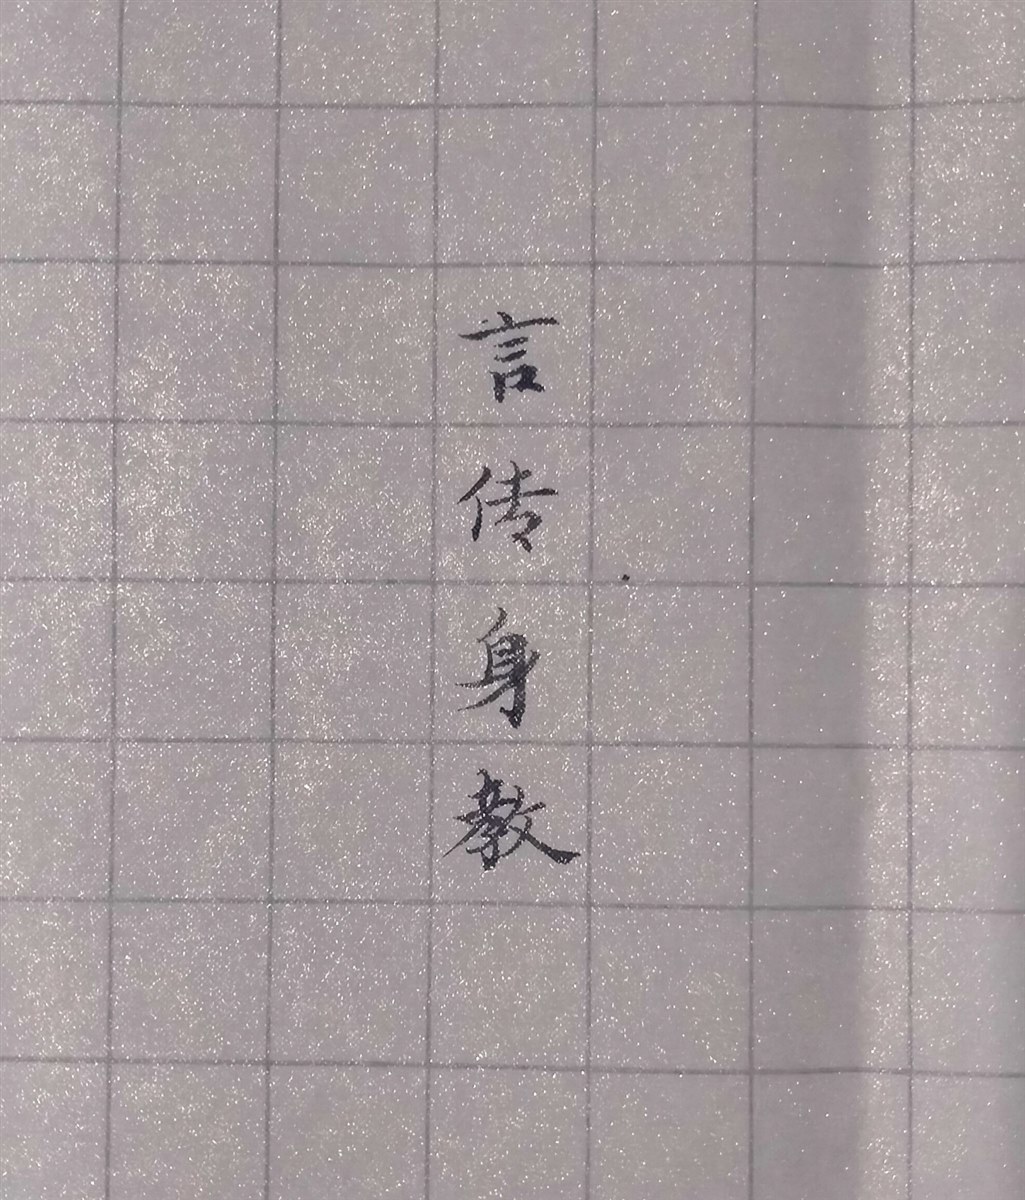 言传身教